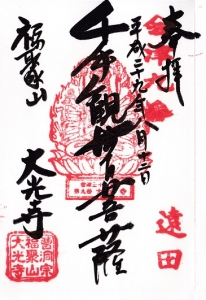 奉拝
平成二十九年八月十二日
遠田
千手観世音菩薩
福聚山
大光寺
曹洞宗
福聚山
大光寺